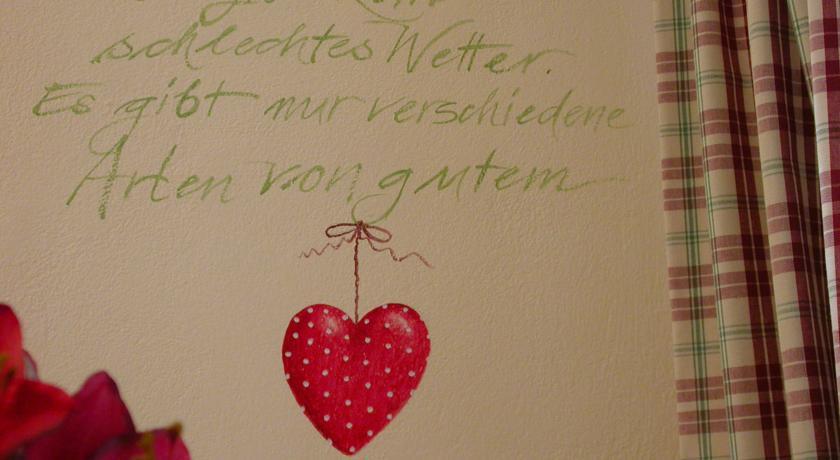 schlechtes Wetter.
Es gibt nur verschiedene
Arten von gutem